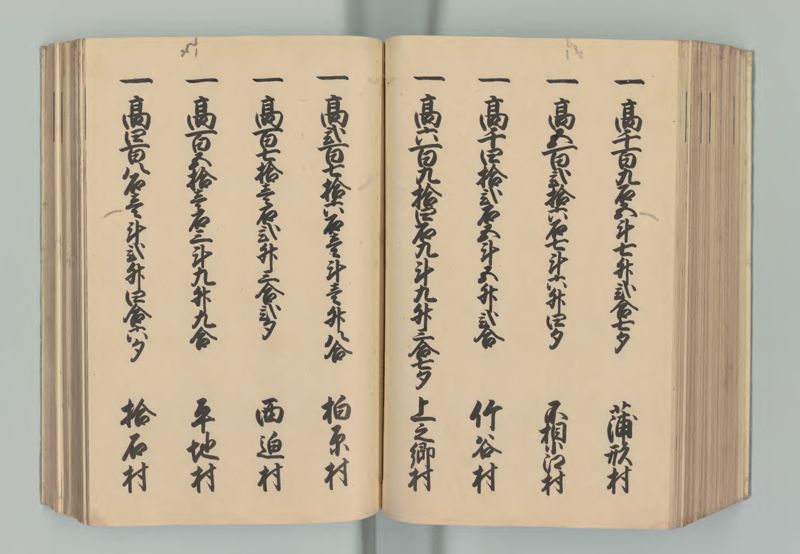 一 高千百九石五斗七升弐合七夕 蒲形村
一 高五百弐拾六石七斗六升四夕 不相村
一 高千四拾弐石五斗五升弐合 竹谷村
一 高六百九拾四石九斗九升三合七夕 上之郷村
一 高弐百七拾六石壱斗壱升八合 柏原村
一 高百七拾壱石弐升三合弐夕 西迫村
一 高百五拾壱石三斗九升九合 平地村
一 高四百八石壱斗弐升四合六夕 拾石村